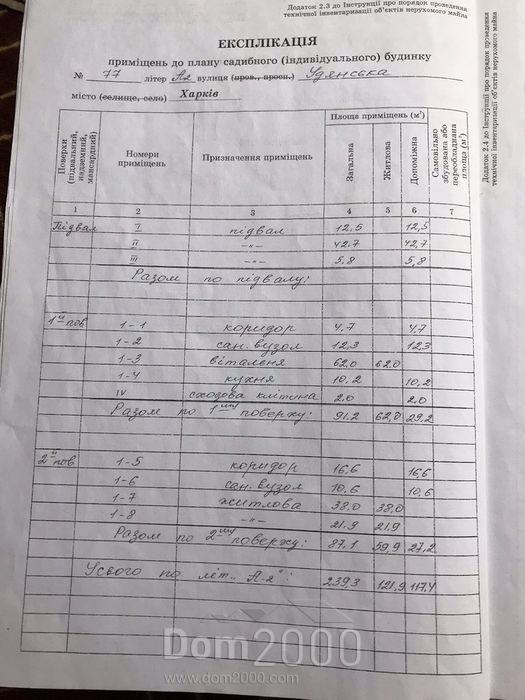 Додаток 2.3 до Інструкції про порядок проведення
технічної інвентаризації об'єктів нерухомого майна
ЕКСПЛІКАЦІЯ
приміщень до плану садибного (індивідуального) будинку
№ 77 літер А2 вулиця (пров., просп.) Удянська
місто (селище, село) Харків
Поверхи (підвальний, надземний, мансардний) Номери приміщень Призначення приміщень Площа приміщень (м²) Загальна Житлова Допоміжна Самовільно збудована або переобладнана площа (м²)
1 2 3 4 5 6 7
Підвал I підвал 12,5 12,5
II -"- 42,7 42,7
III -"- 5,8 5,8
Разом по підвалу:
1й пов 1-1 коридор 4,7 4,7
1-2 сан. вузол 12,3 12,3
1-3 вітальня 62,0 62,0
1-4 кухня 10,2 10,2
IV сходова клітина 2,0 2,0
Разом по 1му поверху: 91,2 62,0 29,2
2й пов 1-5 коридор 16,6 16,6
1-6 сан. вузол 10,6 10,6
1-7 житлова 38,0 38,0
1-8 -"- 21,9 21,9
Разом по 2му поверху: 87,1 59,9 27,2
Усього по літ. "А-2": 239,3 121,9 117,4
Додаток 2.4 до Інструкції про порядок проведення
технічної інвентаризації об'єктів нерухомого майна
Dom2000
www.dom2000.com